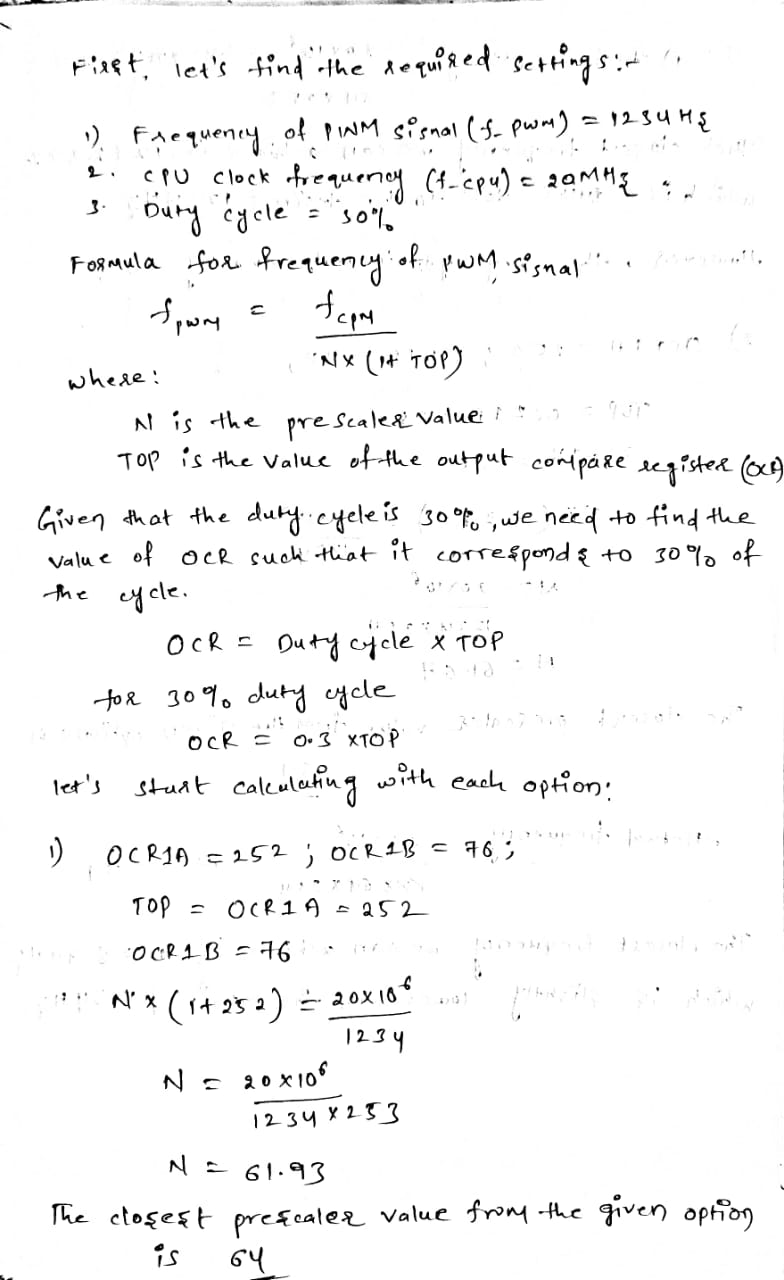 First, let's find the required settings:-
1) Frequency of PWM signal (f_pwm) = 1234 Hz
2. CPU clock frequency (f_cpu) = 20MHz
3. Duty cycle = 30%
Formula for frequency of PWM signal
f pwm = f cpu / N x (1+ TOP)
where:
N is the prescaler value
TOP is the value of the output compare register (OCR)
Given that the duty cycle is 30%, we need to find the
value of OCR such that it corresponds to 30% of
the cycle.
OCR = Duty cycle x TOP
for 30% duty cycle
OCR = 0.3 x TOP
let's start calculating with each option:
1) OCR1A = 252 ; OCR1B = 76 ;
TOP = OCR1A = 252
OCR1B = 76
N x (1+252) = 20x10^6 / 1234
N = 20x10^6 / 1234 x 253
N = 61.93
The closest prescaler value from the given option
is 64